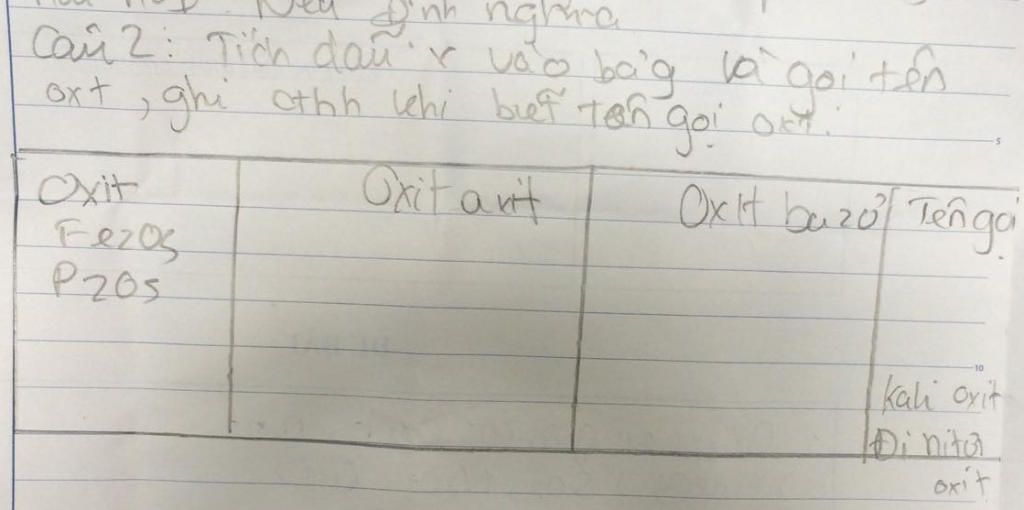 Nêu định nghĩa
Câu 2: Tích dấu x vào bảg và gọi tên
oxt, ghi cthh khi biết tên gọi oxt.
5
Oxit Oxit axit Oxit bazơ Tên gọi
Fe2O3
P2O5
10
Kali oxit
Đi nitơ
oxit